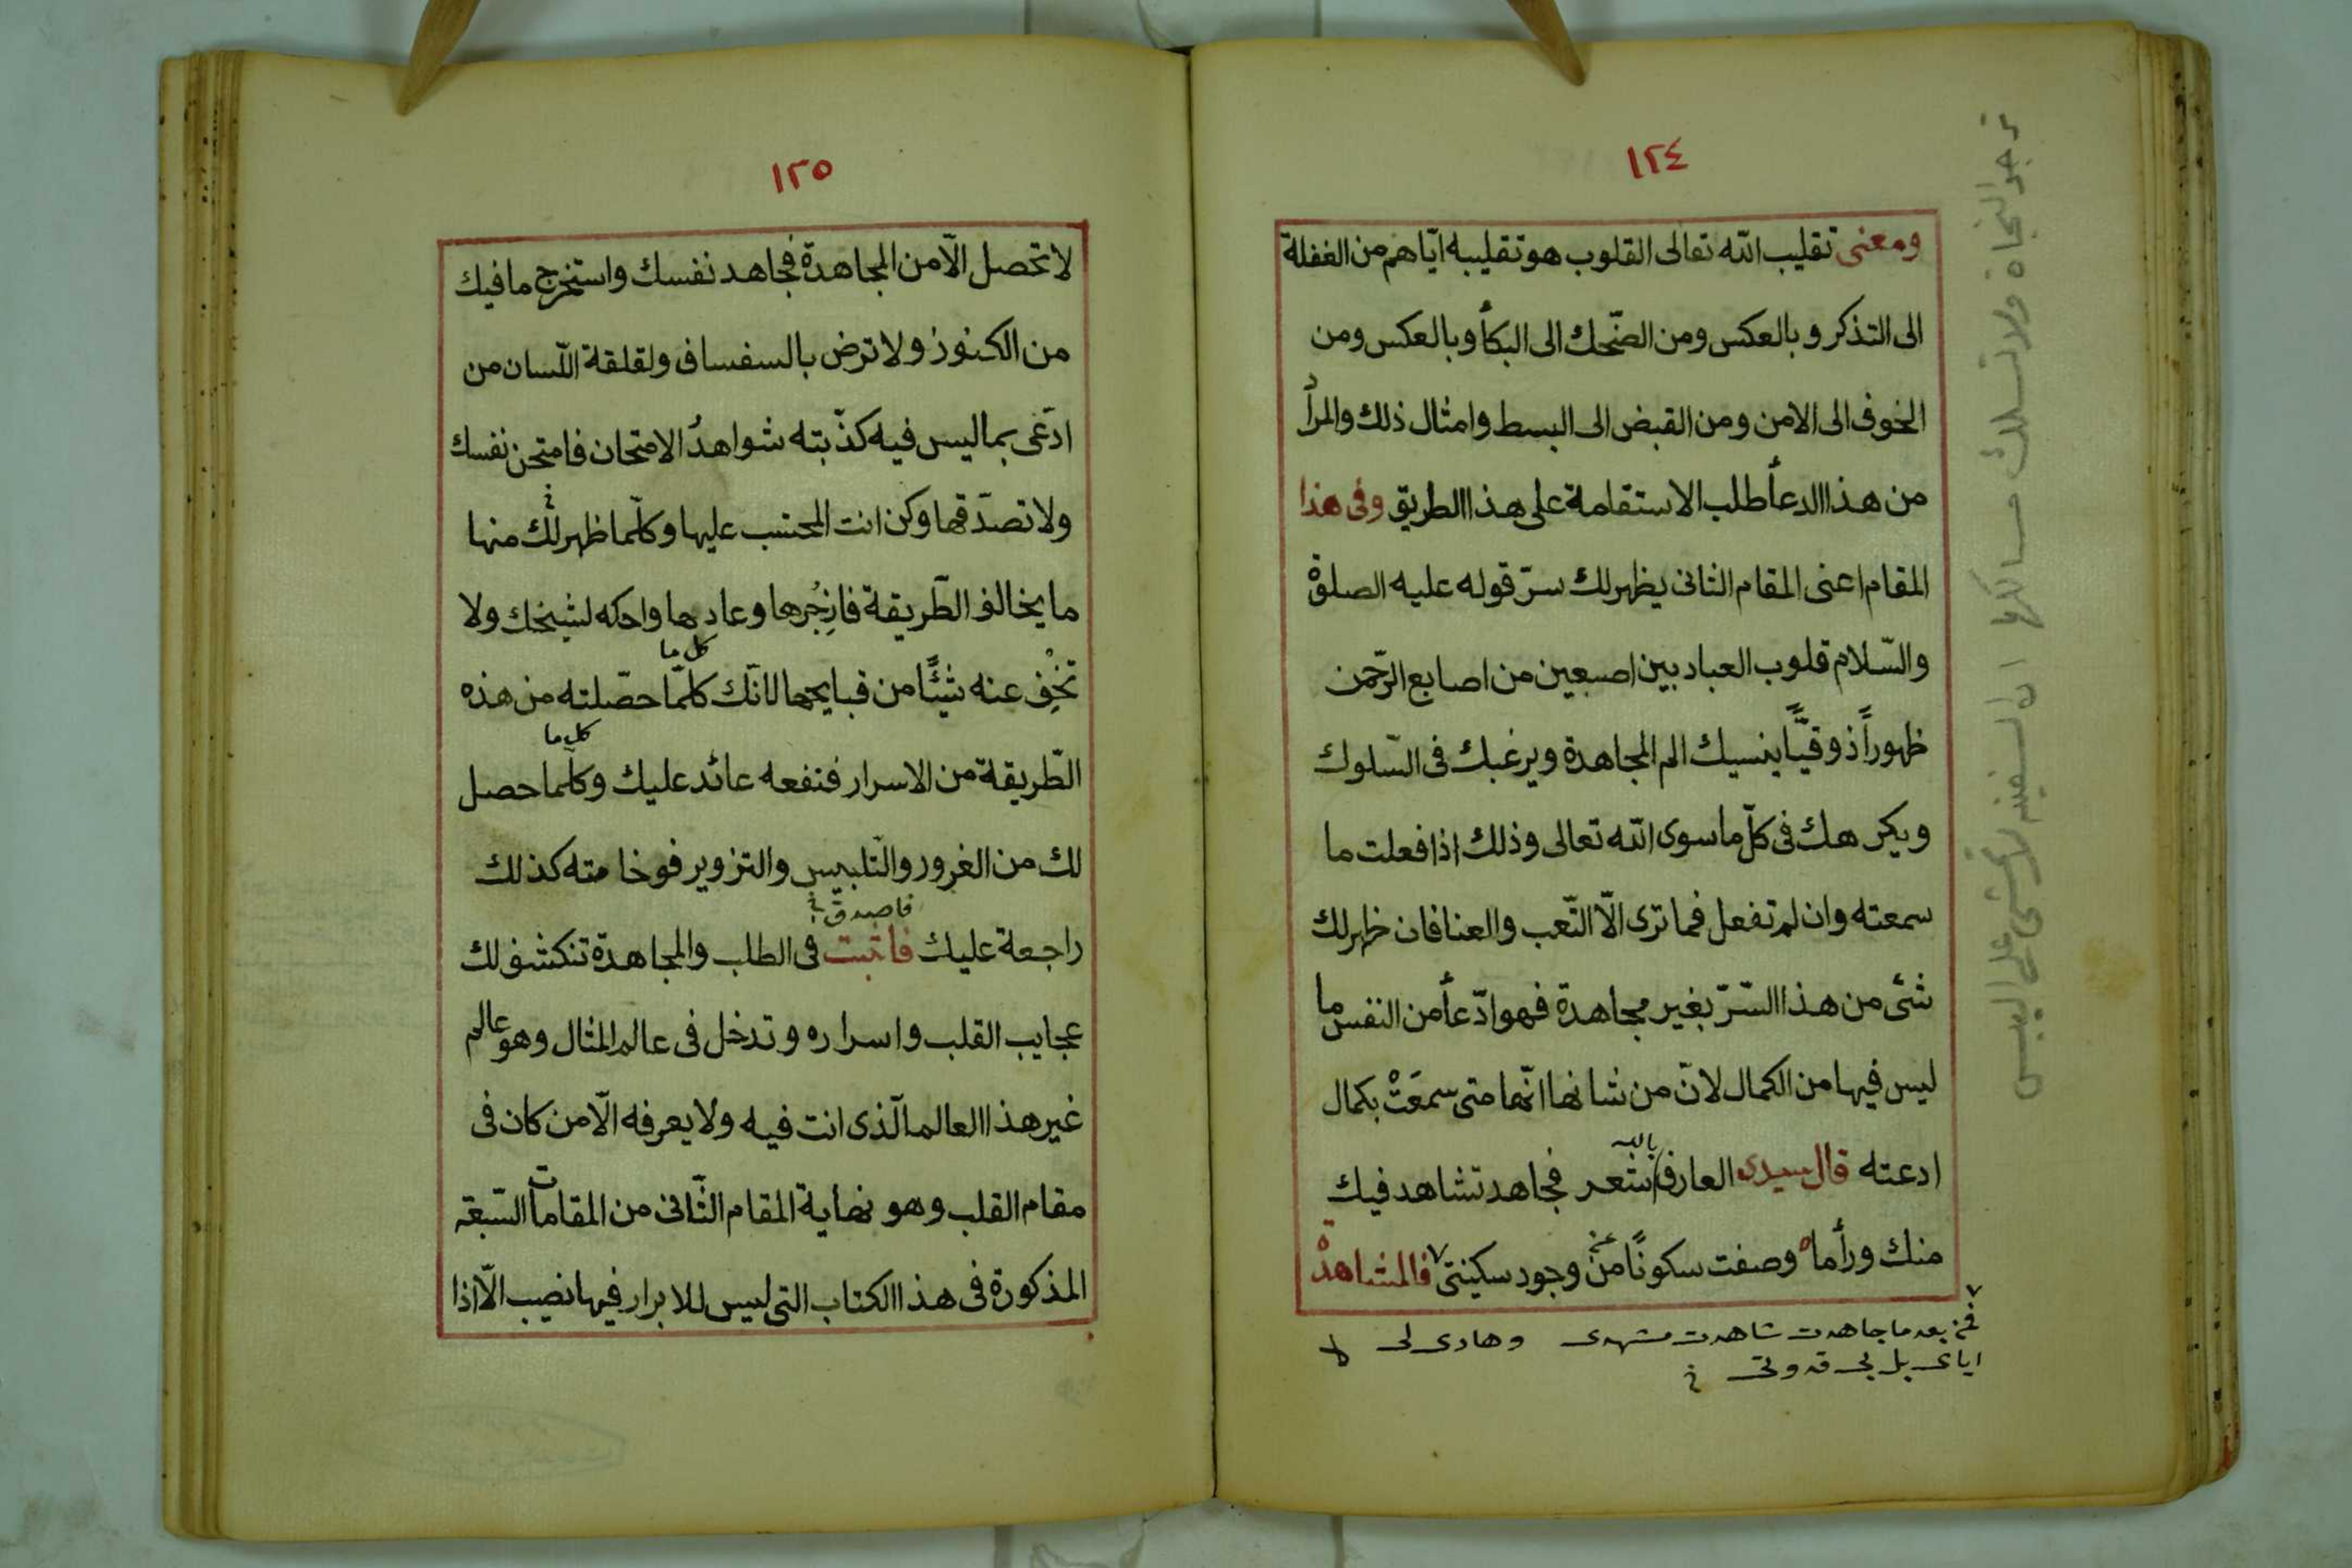 ١٢٤
ومعنى تقليب الله تعالى القلوب هو تقليبه ايّاهم من الغفلة
الى التذكر وبالعكس ومن الضّحك الى البكأ وبالعكس ومن
الخوف الى الامن ومن القبض الى البسط وامثال ذلك والمرأد
من هذا الدعأ طلب الاستقامة على هذا الطريق وفى هذا
المقام اعنى المقام الثانى يظهر لك سرّ قوله عليه الصلوة
والسّلام قلوب العباد بين اصبعين من اصابع الرّحمن
ظهوراً ذوقيًّا ينسيك الم المجاهدة ويرغبك فى السّلوك
ويكرهك فى كلّ ما سوى الله تعالى وذلك اذا فعلت ما
سمعته وان لم تفعل فما ترى الّا التّعب والعنا فان ظهر لك
شئ من هذا السّرّ بغير مجاهدة فهو ادّعأ من النفس ما
ليس فيها من الكمال لانّ من شانها انّها متى سمعَتْ بكمال
ادعته قال سيدى العارف بالله شعر فجاهد تشاهد فيك
منك ورأما وصفت سكونًا من عن وجود سكينتى ٧ فالمشاهدة
٧ فمن بعد ما جاهدت شاهدت مشهدى وهادى لى
اياى بل بى قدوتى
ترجو النجاة ولا تسلك مسالكها ان السفينة لا تمشى على اليبس
١٢٥
لا تحصل الّا من المجاهدة فجاهد نفسك واستخرج ما فيك
من الكنوز ولا ترض بالسفساف ولقلقة اللّسان من
ادّعى بما ليس فيه كذّبته شواهدُ الامتحان فامتحن نفسك
ولا تصدّقها وكن انت المحتسب عليها وكلّما ظهر لك منها
ما يخالف الطّريقة فازجُرها وعادها واحكه لشيخك ولا
كل ما
تخْفِ عنه شيئًا من قبايحها لانّك كلّما حصّلته من هذه
كل ما
الطّريقة من الاسرار فنفعه عائد عليك وكلّما حصل
لك من الغرور والتّلبيس والتزوير فوخامته كذلك
فاصدق
راجعة عليك فاثبت فى الطلب والمجاهدة تنكشف لك
عجايب القلب واسراره وتدخل فى عالم المثال وهو عالم
غير هذا العالم الّذى انت فيه ولا يعرفه الّا من كان فى
مقام القلب وهو نهاية المقام الثّانى من المقامات السّبعة
المذكورة فى هذا الكتاب التى ليس للابرار فيها نصيب الّا اذا